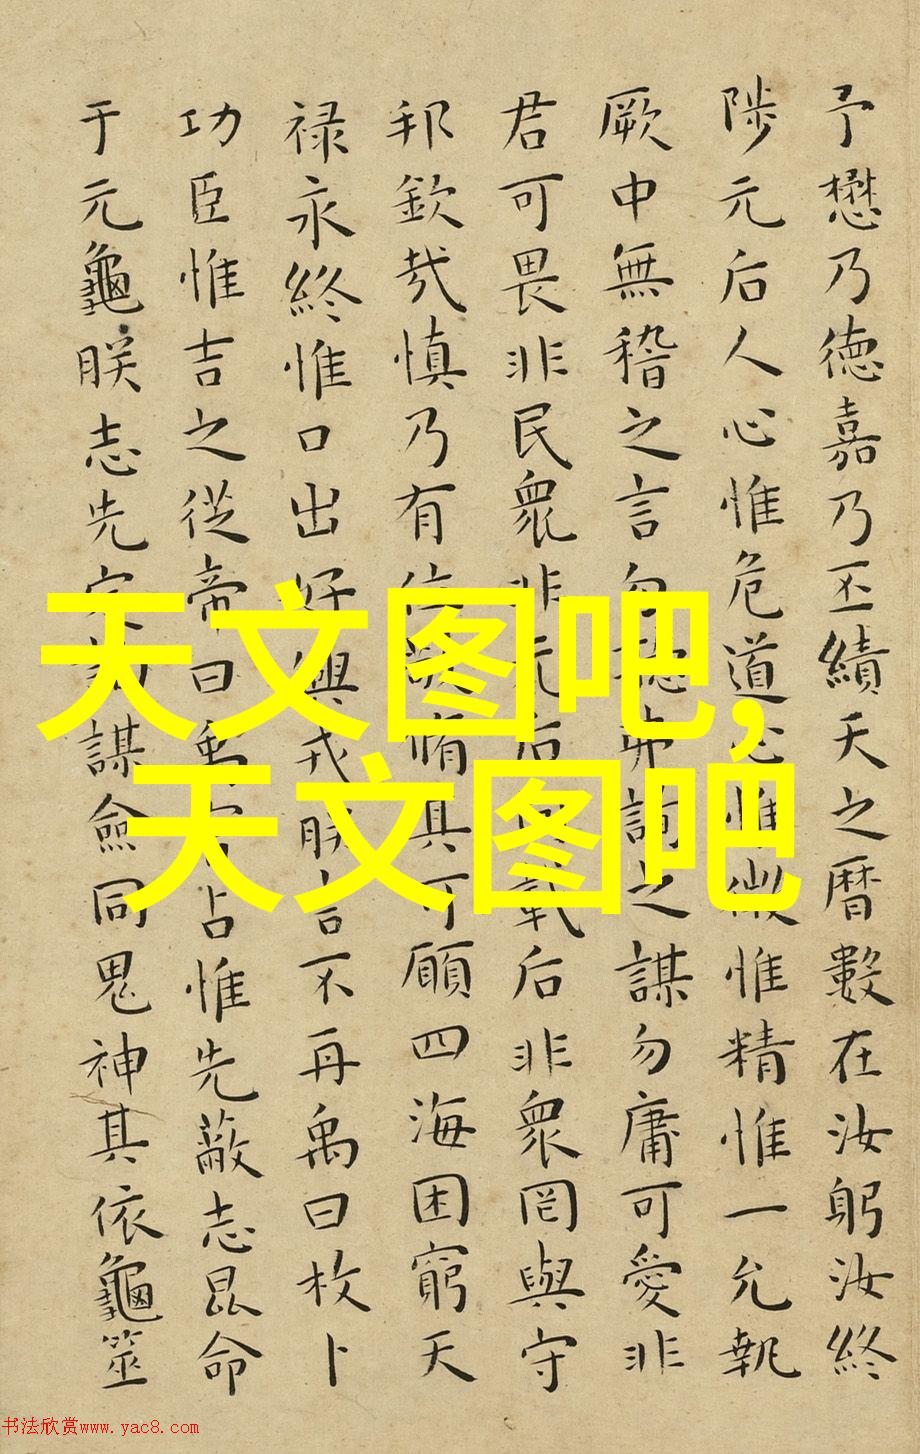 予懋乃德嘉乃丕績天之曆數在汝躬汝終
陟元后人心惟危道心惟微惟精惟一允執
厥中無稽之言勿聽弗詢之謀勿庸可愛非
君可畏非民衆非元后何戴后非衆罔與守
邦欽哉慎乃有位敬脩其可願四海困窮天
禄永終惟口出好興戎朕言不再禹曰枚卜
功臣惟吉之從帝曰禹官占惟先蔽志昆命
于元龜朕志先定詢謀僉同鬼神其依龜筮
天文图吧,
天文图吧
书法欣赏www.yac8.com